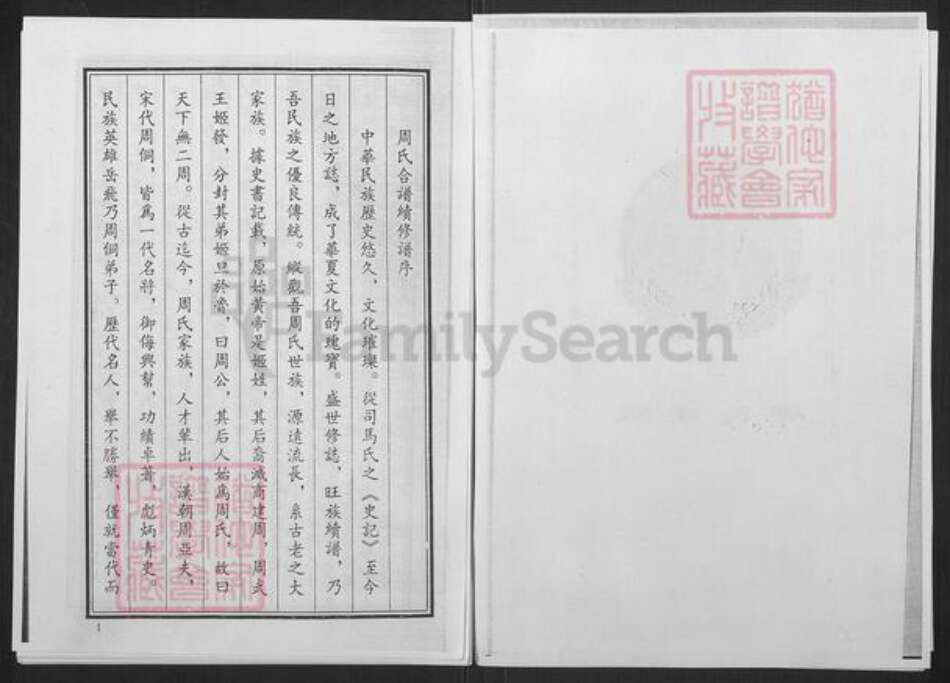 周氏合譜續修譜序
中華民族歷史悠久，文化璀璨。從司馬氏之《史記》至今
日之地方誌，成了華夏文化的瑰寶。盛世修誌，旺族續譜，乃
吾民族之優良傳統。縱觀吾周氏世族，源遠流長，系古老之大
家族。據史書記載，原始黃帝是姬姓，其后裔滅商建周，周武
王姬發，分封其弟姬旦於魯，曰周公，其后人始爲周氏，故曰
天下無二周。從古迄今，周氏家族，人才輩出，漢朝周亞夫，
宋代周侗，皆爲一代名將，御侮興幫，功績卓著，彪炳青史。
民族英雄岳飛乃周侗弟子。歷代名人，舉不勝舉，僅就當代而
1
譜學會
收藏
FamilySearch